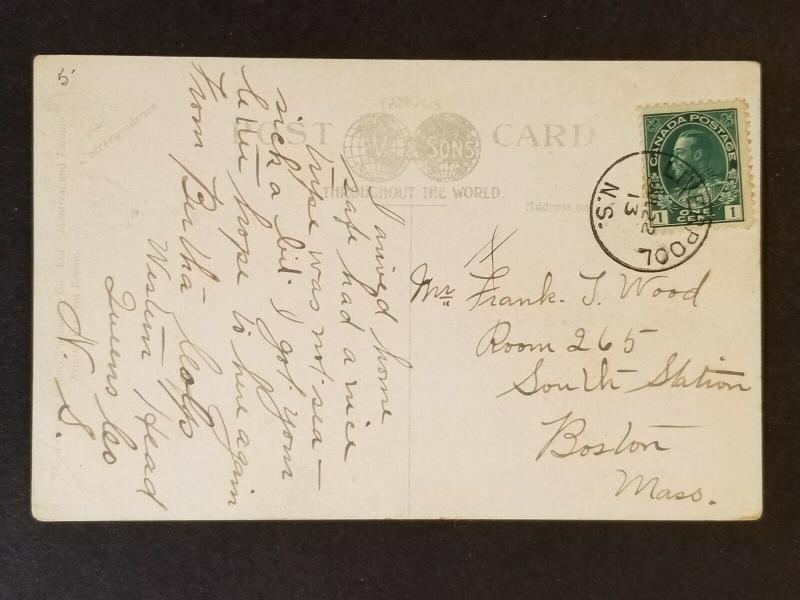 5
Correspondence
FAMOUS
POST CARD
V. & SONS
THROUGHOUT THE WORLD.
Address
CANADA POSTAGE
1 ONE CENT 1
LIVERPOOL
22
13
N.S.
I arived home
safe had a nice
tripe was not sea-
sick a bit. I got your
letter hope to here again
from Bertha
Western Head
Queens Co
N. S.
Mr Frank. T. Wood
Room 265
South Station
Boston
Mass.